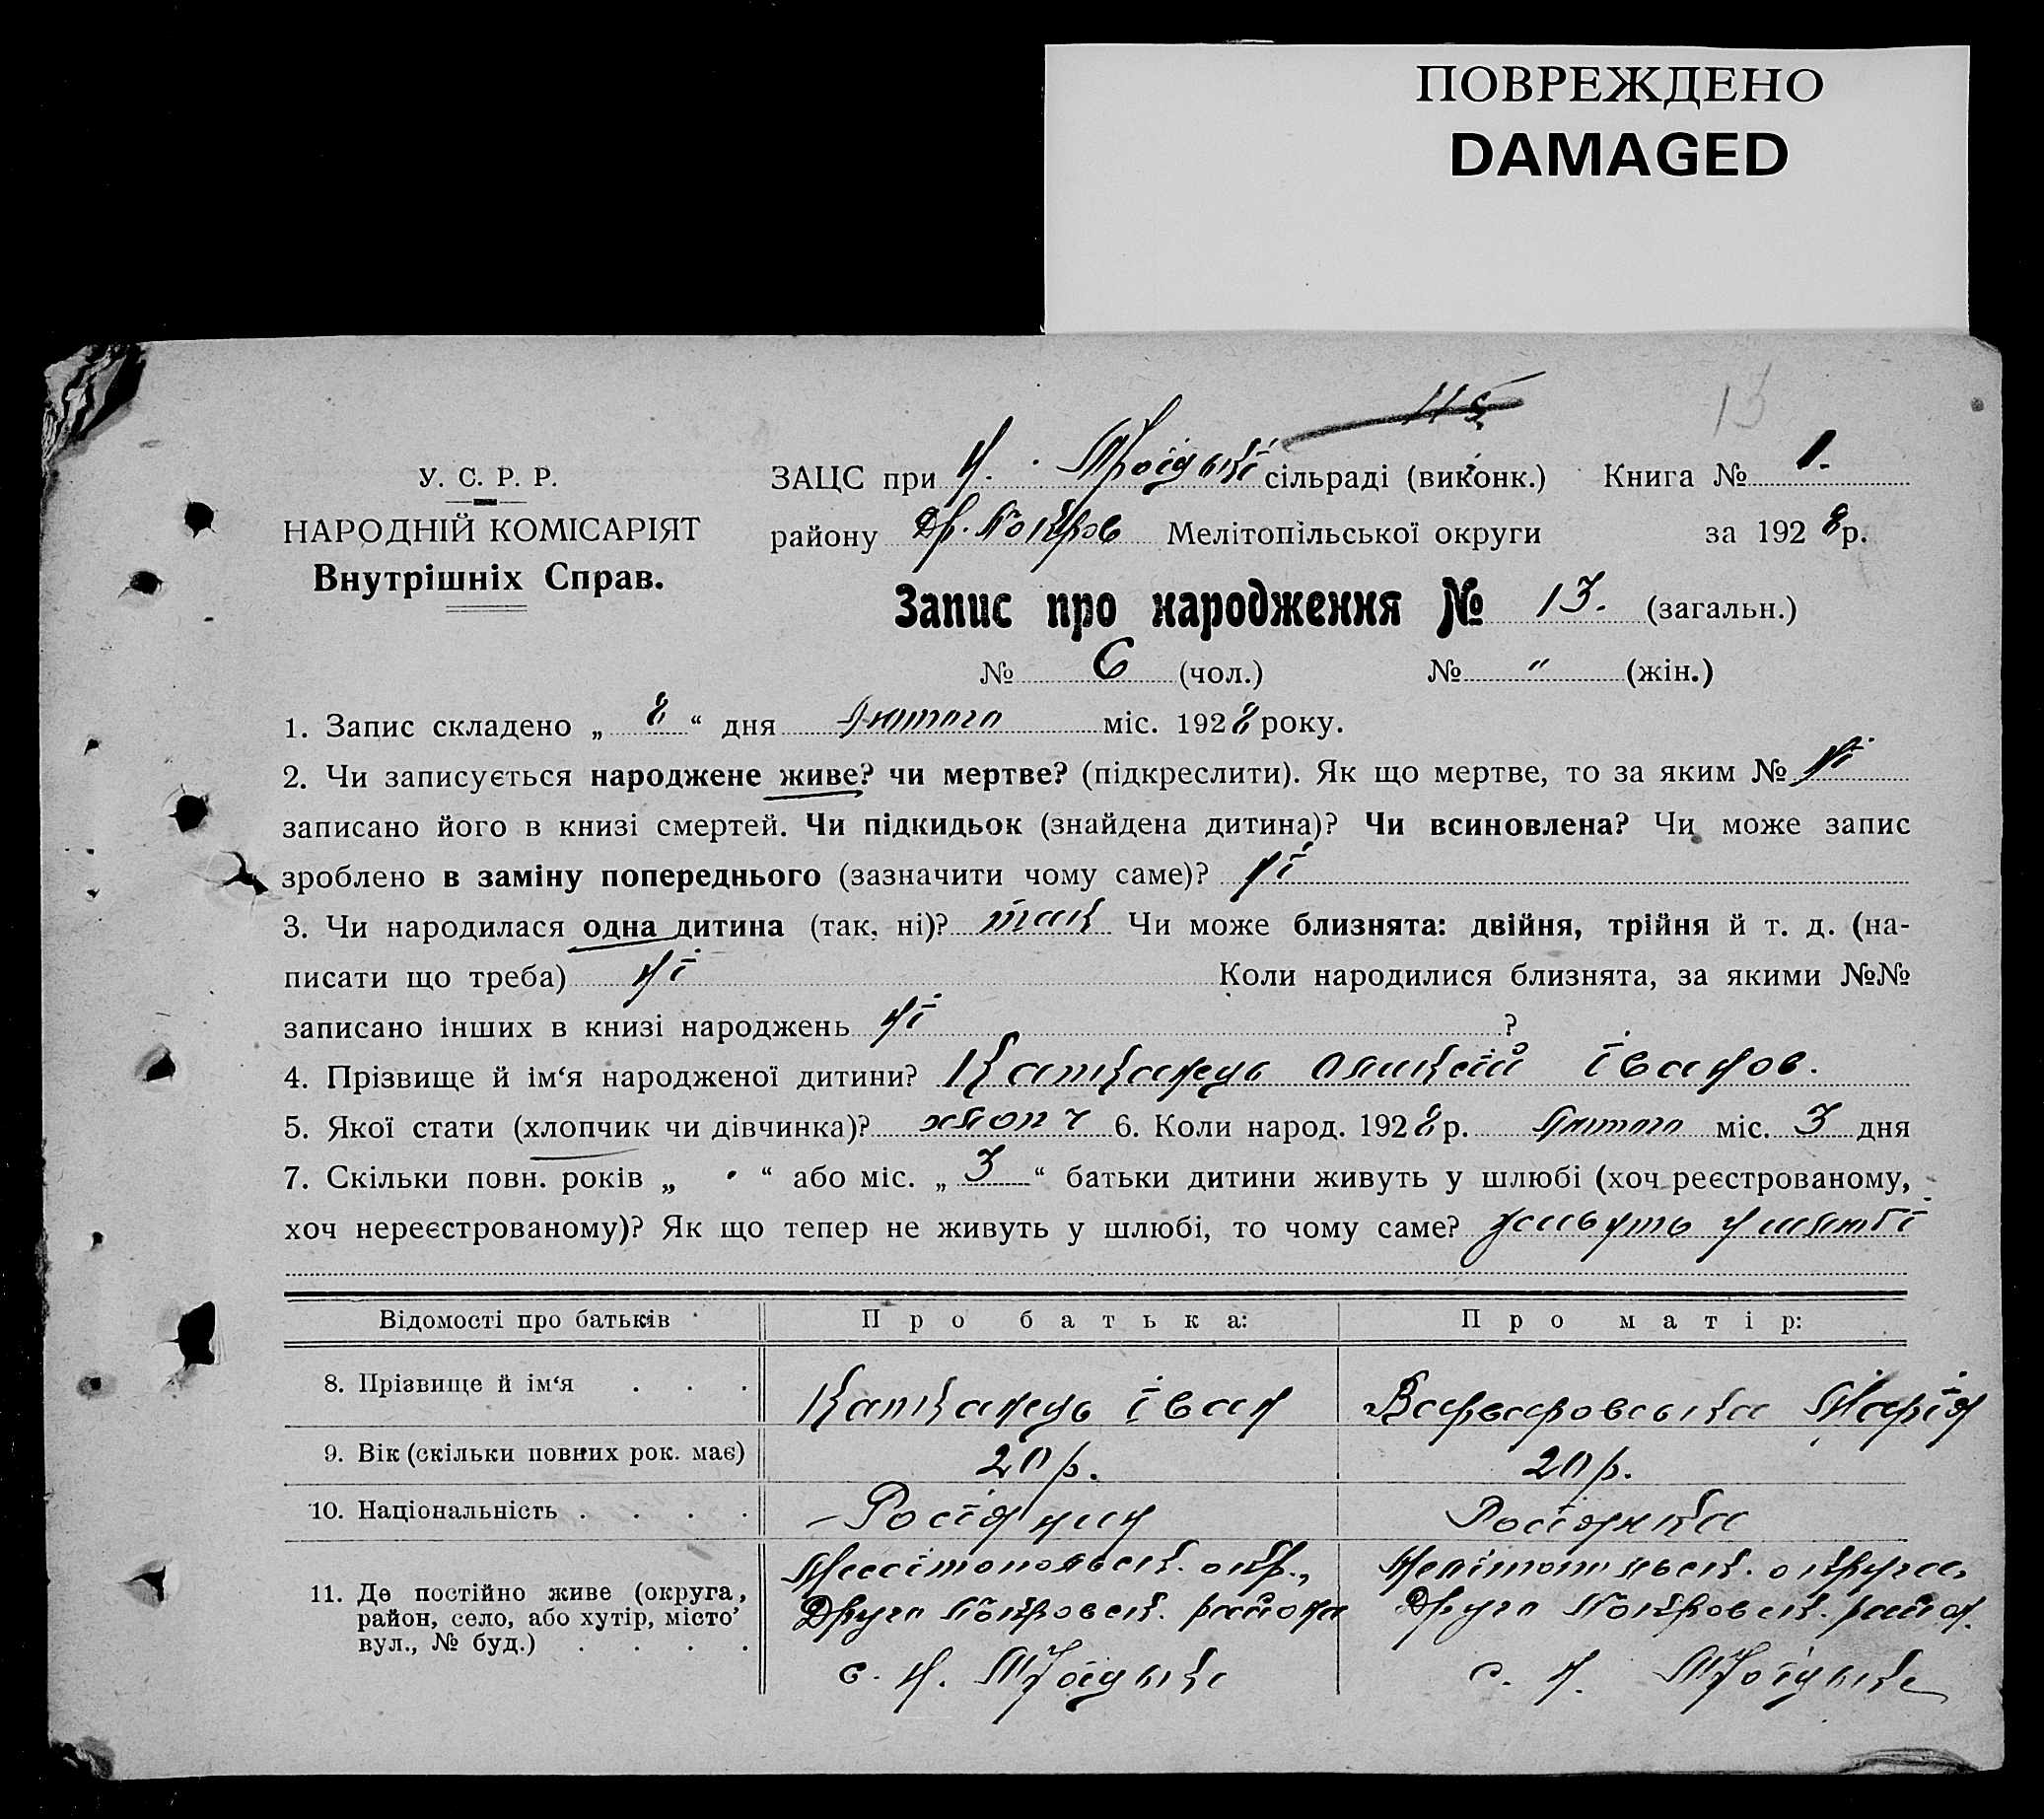 ПОВРЕЖДЕНО
DAMAGED
115
13
У. С. Р. Р.
НАРОДНІЙ КОМІСАРІЯТ
Внутрішніх Справ.
ЗАЦС при Н. Троїцькі сільраді (виконк.) Книга № 1.
району Др. Покров Мелітопільської округи за 1928 р.
Запис про народження № 13. (загальн.)
№ 6 (чол.) № " (жін.)
1. Запис складено „ 8 “ дня лютого міс. 1928 року.
2. Чи записується народжене живе? чи мертве? (підкреслити). Як що мертве, то за яким № ні
записано його в книзі смертей. Чи підкидьок (знайдена дитина)? Чи всиновлена? Чи може запис
зроблено в заміну попереднього (зазначити чому саме)? ні
3. Чи народилася одна дитина (так, ні)? так Чи може близнята: двійня, трійня й т. д. (на-
писати що треба) ні Коли народилися близнята, за якими №№
записано інших в книзі народжень ні ?
4. Прізвище й ім‘я народженої дитини? Каткануць Іванов.
5. Якої стати (хлопчик чи дівчинка)? хлопч 6. Коли народ. 1928 р. лютого міс. 3 дня
7. Скільки повн. років „ • “ або міс. „ 3 “ батьки дитини живуть у шлюбі (хоч реєстрованому,
хоч нереєстрованому)? Як що тепер не живуть у шлюбі, то чому саме? живуть у шлюбі
Відомості про батьків Про батька: Про матір:
8. Прізвище й ім‘я . . . Іван Варваровська Марія
9. Вік (скільки повних рок. має) 20 р. 20 р.
10. Національність . . . . Росіянин Росіянка
11. Де постійно живе (округа, район, село, або хутір, місто’ вул., № буд.) . . . .
Мелітопольськ. окр.,
Друго Покровськ. района
с. Н. Троїцьке
Мелітопільськ. округа,
Друго Покровськ. район.
с. Н. Троїцьке